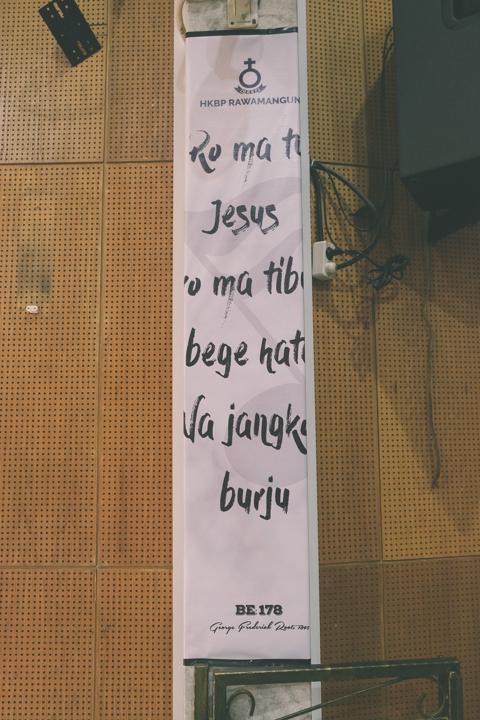 HKBP RAWAMANGUN
Ro ma tu
Jesus
ro ma tibu
bege hata
Na jangko
burju
BE 178
George Frederick Root 1820